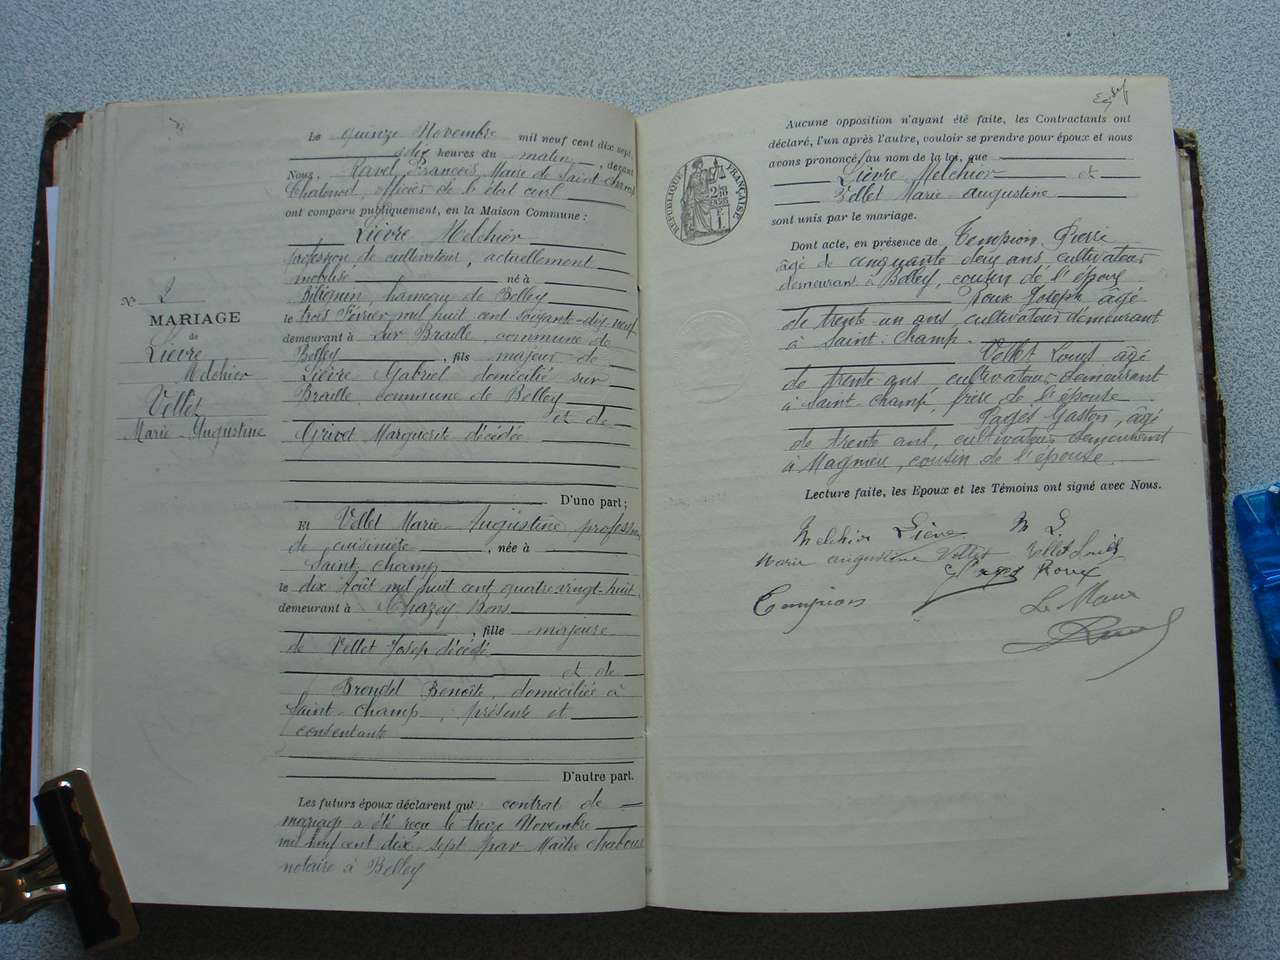 Le quinze Novembre mil neuf cent dix sept
dix heures du matin, devant
Nous, Ravet François, Maire de Saint-Champ
Chatonod, officier de l'état civil
ont comparu publiquement, en la Maison Commune :
Lièvre Melchior
profession de cultivateur, actuellement
mobilisé né à
Billignin, hameau de Belley
le trois Février mil huit cent soixante-dix neuf
demeurant à Sur Braille, commune de
Belley, fils majeur de
Lièvre Gabriel domicilié sur
Braille, commune de Belley
et de
Grivet Marguerit décédée
D'une part ;
Et Vellet Marie-Augustine profession
de cuisinière, née à
Saint Champ
le dix Août mil huit cent quatre vingt-huit
demeurant à Chazey Bons
, fille majeure
de Vellet Josep décédé
et de
Brondel Benoîte, domiciliée à
Saint-Champ, présente et
consentante
D'autre part.
Les futurs époux déclarent qu' contrat de
mariage a été reçu le treize Novembre
mil neuf cent dix sept par Maître
notaire à Belley
N° 2
MARIAGE
de
Lièvre
Melchior
Vellet
Marie-Augustine
Aucune opposition n'ayant été faite, les Contractants ont
déclaré, l'un après l'autre, vouloir se prendre pour époux et nous
avons prononcé au nom de la loi, que
Lièvre Melchior et
Vellet Marie-Augustine
sont unis par le mariage.
RÉPUBLIQUE FRANÇAISE
Dont acte, en présence de Tempion Pierre
âgé de cinquante deux ans, cultivateur
demeurant à Belley, cousin de l'époux
Roux Joseph âgé
de trente un ans, cultivateur demeurant
à Saint-Champ. Vellet Louis âgé
de trente ans, cultivateur demeurant
à Saint-Champ, frère de l'épouse
Pagès Gaston, âgé
de trente ans, cultivateur demeurant
à Magnieu, cousin de l'épouse.
Lecture faite, les Epoux et les Témoins ont signé avec Nous.
Melchior Lièvre M L
Marie augustine Vellet Vellet Louis
Roux
Tempion
Le Maire
Ravet